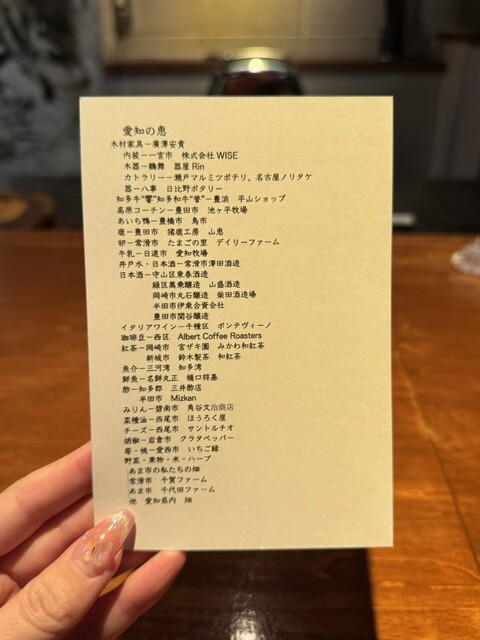 愛知の恵
木材家具－廣澤安貴
内装－一宮市 株式会社 WISE
木器－鶴舞 器屋 Rin
カトラリー－瀬戸マルミツポテリ、名古屋ノリタケ
器－八事 日比野ポタリー
知多牛“響”知多和牛“誉”－豊浜 平山ショップ
高原コーチン－豊田市 池ヶ平牧場
あいち鴨－豊橋市 鳥市
鹿－豊田市 猪鹿工房 山恵
卵－常滑市 たまごの里 デイリーファーム
牛乳－日進市 愛知牧場
井戸水・日本酒－常滑市澤田酒造
日本酒－守山区東春酒造
緑区萬乗醸造 山盛酒造
岡崎市丸石醸造 柴田酒造場
半田市伊東合資会社
豊田市関谷醸造
イタリアワイン－千種区 ポンテヴィーノ
珈琲豆－西区 Albert Coffee Roasters
紅茶－岡崎市 宮ザキ園 みかわ和紅茶
新城市 鈴木製茶 和紅茶
魚介－三河湾 知多湾
鮮魚－名鮮丸正 樋口将基
酢－知多郡 三井酢店
半田市 Mizkan
みりん－碧南市 角谷文治商店
菜種油－西尾市 ほうろく屋
チーズ－西尾市 サントルチオ
胡椒－岩倉市 クラタペッパー
苺・桃－愛西市 いちご縁
野菜・果物・米・ハーブ
あま市の私たちの畑
常滑市 千賀ファーム
あま市 千代田ファーム
他 愛知県内 畑